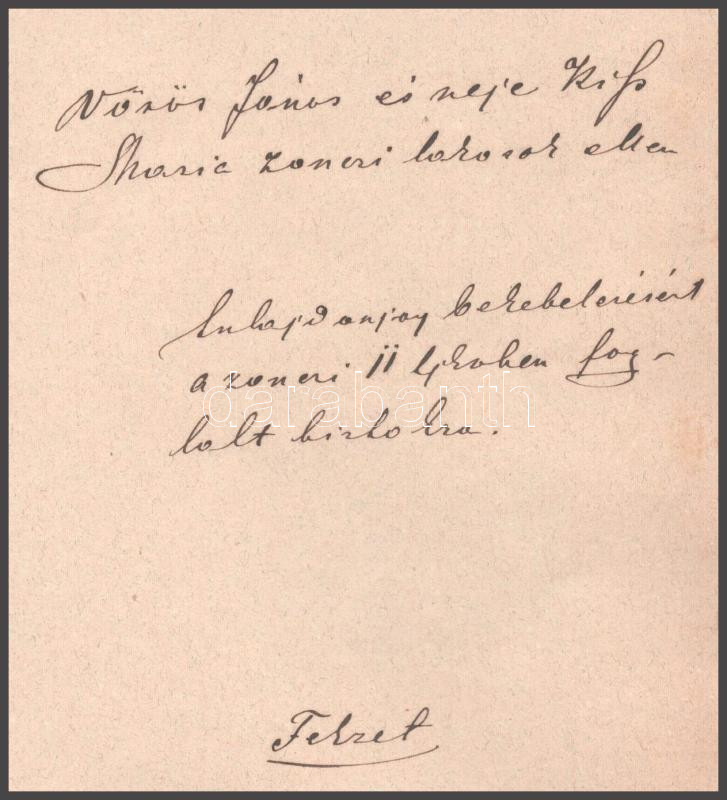 Vörös János és neje Kiss
Maria zoneri lakosok ellen
tulajdonjog bekebelezéseért
a zoneri 11 tjkvben fog-
lalt birtokra.
darabanth
Fekzet